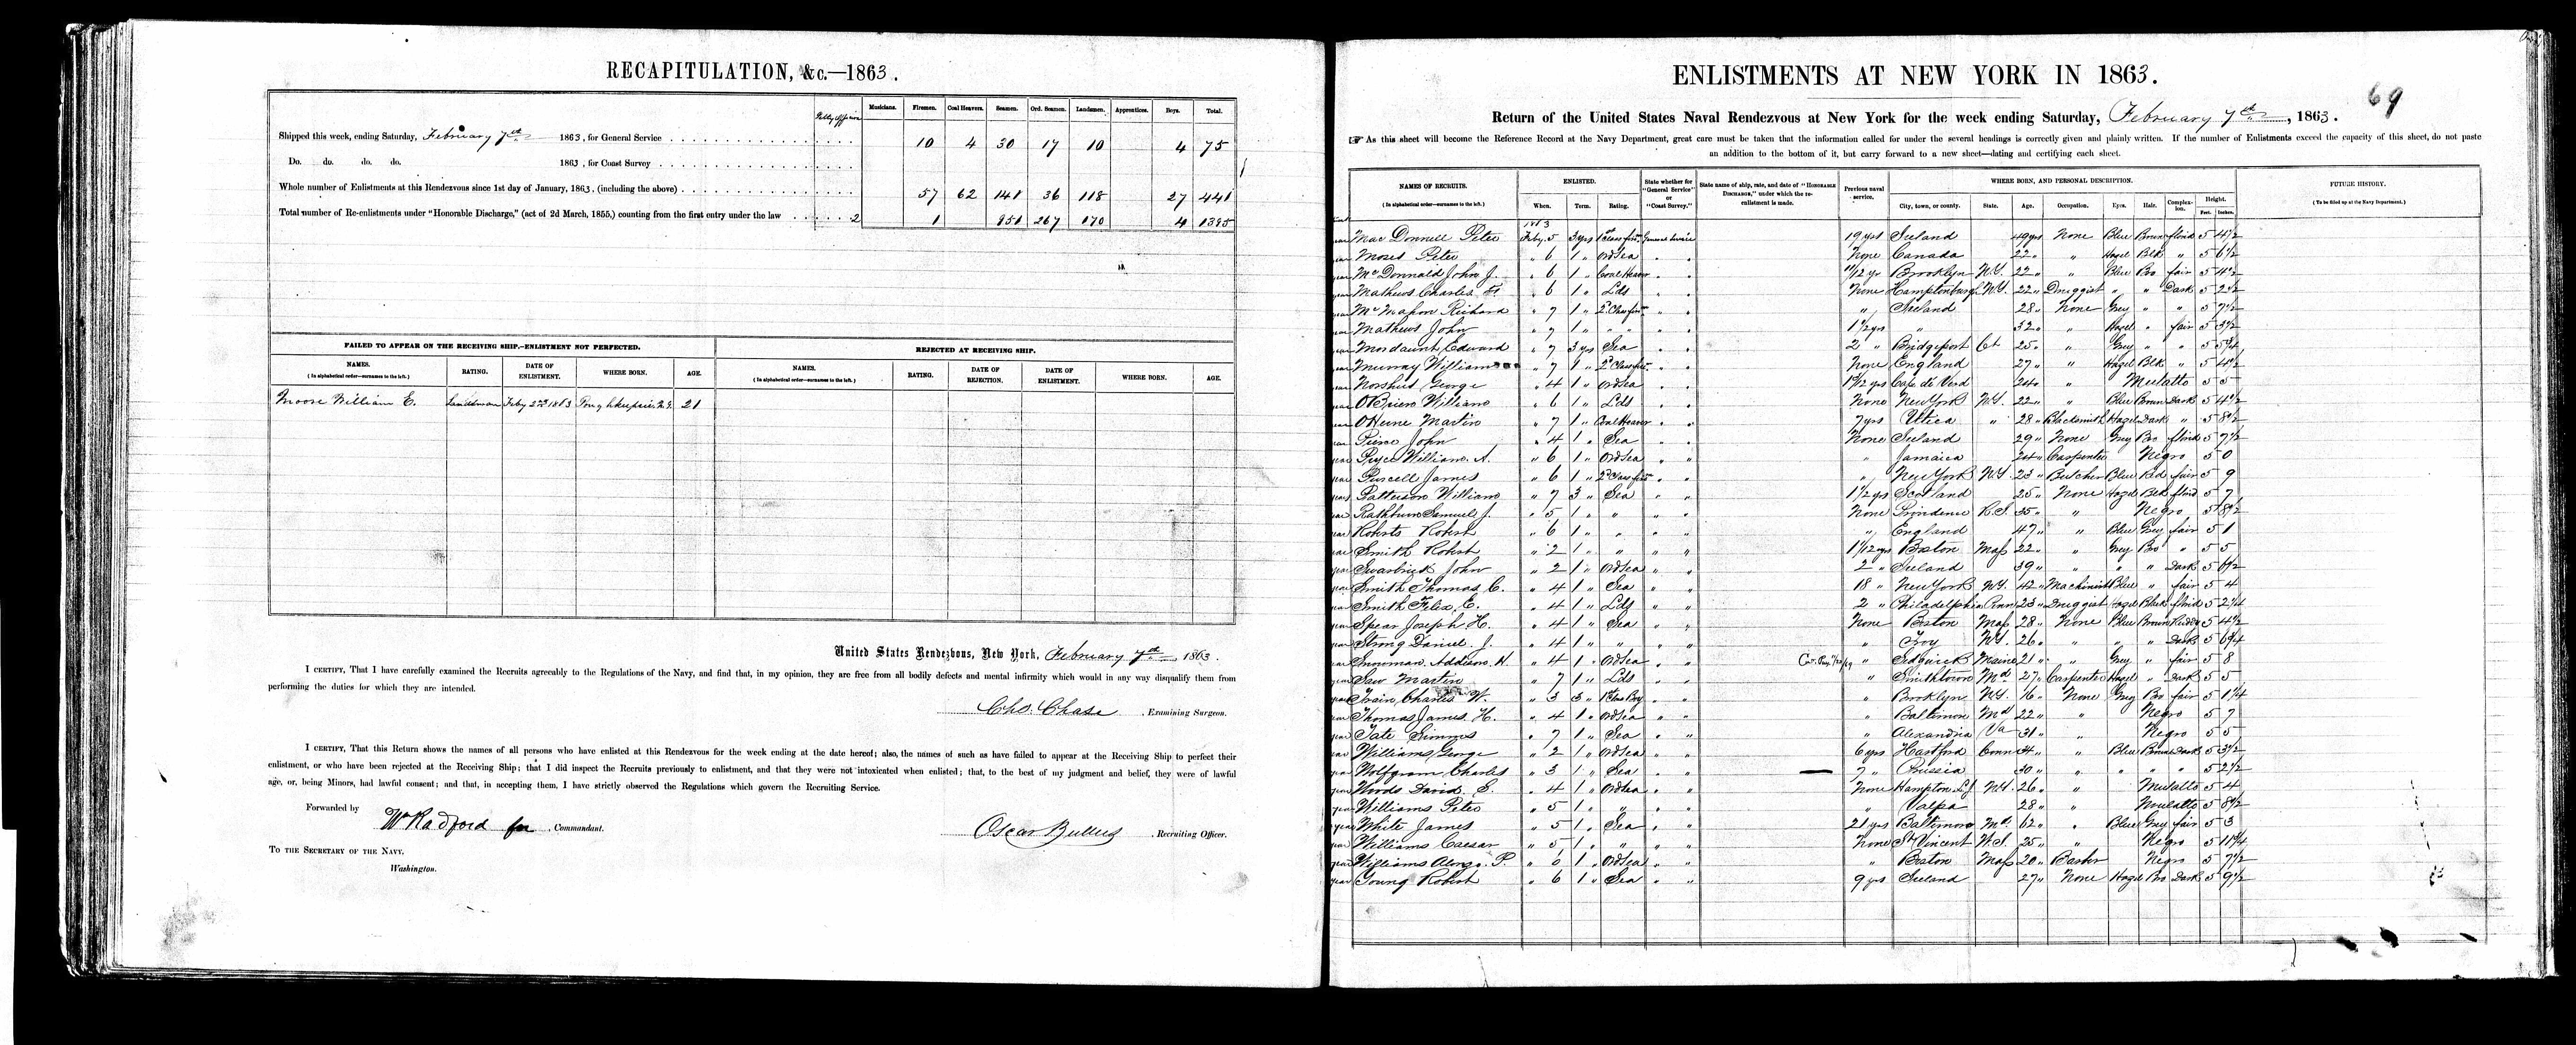 RECAPITULATION, &c.—1863.
Petty Officers Musicians. Firemen. Coal Heavers. Seamen. Ord. Seamen. Landsmen. Apprentices. Boys. Total.
Shipped this week, ending Saturday, February 7th 1863, for General Service 10 4 30 17 10 4 75
Do. do. do. do. 1863, for Coast Survey
Whole number of Enlistments at this Rendezvous since 1st day of January, 1863, (including the above) 57 62 141 36 118 27 441
Total number of Re-enlistments under "Honorable Discharge," (act of 2d March, 1855,) counting from the first entry under the law 2 1 951 267 170 4 1395
FAILED TO APPEAR ON THE RECEIVING SHIP.—ENLISTMENT NOT PERFECTED. REJECTED AT RECEIVING SHIP.
NAMES. (In alphabetical order—surnames to the left.) RATING. DATE OF ENLISTMENT. WHERE BORN. AGE. NAMES. (In alphabetical order—surnames to the left.) RATING. DATE OF REJECTION. DATE OF ENLISTMENT. WHERE BORN. AGE.
Moore William E. Landsman Feby 2nd 1863 Poughkeepsie N.Y. 21
United States Rendezvous, New York, February 7th 1863.
I CERTIFY, That I have carefully examined the Recruits agreeably to the Regulations of the Navy, and find that, in my opinion, they are free from all bodily defects and mental infirmity which would in any way disqualify them from
performing the duties for which they are intended.
Cho. Chase, Examining Surgeon.
I CERTIFY, That this Return shows the names of all persons who have enlisted at this Rendezvous for the week ending at the date hereof; also, the names of such as have failed to appear at the Receiving Ship to perfect their
enlistment, or who have been rejected at the Receiving Ship; that I did inspect the Recruits previously to enlistment, and that they were not intoxicated when enlisted; that, to the best of my judgment and belief, they were of lawful
age, or, being Minors, had lawful consent; and that, in accepting them, I have strictly observed the Regulations which govern the Recruiting Service.
Forwarded by
Wm Radford for, Commandant.
Oscar Bullus, Recruiting Officer.
TO THE SECRETARY OF THE NAVY,
Washington.
ENLISTMENTS AT NEW YORK IN 1863.
69
Return of the United States Naval Rendezvous at New York for the week ending Saturday, February 7th, 1863.
☞ As this sheet will become the Reference Record at the Navy Department, great care must be taken that the information called for under the several headings is correctly given and plainly written. If the number of Enlistments exceed the capacity of this sheet, do not paste
an addition to the bottom of it, but carry forward to a new sheet—dating and certifying each sheet.
NAMES OF RECRUITS. (In alphabetical order—surnames to the left.) ENLISTED. When. Term. Rating. State whether for "General Service" or "Coast Survey." State name of ship, rate, and date of "HONORABLE DISCHARGE," under which the re-enlistment is made. Previous naval service. WHERE BORN, AND PERSONAL DESCRIPTION. City, town, or county. State. Age. Occupation. Eyes. Hair. Complexion. Height. Feet. Inches. FUTURE HISTORY. (To be filled up at the Navy Department.)
1863
Mac Donnell Peter Feby. 5 3 yrs 1st Class firem General Service 19 yrs Ireland 49 yrs None Blue Brown florid 5 4½
Moses Peter " 6 1 " Ord Sea " " None Canada 22 " " Hazel Blk " 5 6½
McDonnald John J. " 6 1 " Coal Heaver " " Brooklyn N.Y. 22 " " Blue Bro fair 5 4½
Mathews Charles H. " 6 1 " Lds " " None Hamptonburgh N.Y. 22 " Druggist " " Dark 5 2½
McMahon Richard " 7 1 " 2d Class firem " " " Ireland 28 " None Grey " " 5 7½
Mathews John " 7 1 " " " " " 1½ yrs " 32 " " Hazel " fair 5 3½
Mordaunt Edward " 7 3 yrs Sea " " 2 " Bridgeport Ct 25 " " Grey " " 5 5¾
Murray William " 7 1 " 2d Class firem " " None England 27 " " Hazel Blk " 5 4½
Norshut George " 4 1 " Ord Sea " " Cape de Verd 24 " " Mulatto 5 5
O'Brien William " 6 1 " Lds " " None New York N.Y. 22 " " Blue Brown Dark 5 4½
O'Herne Martin " 7 1 " Coal Heaver " " 7 yrs Utica " 28 " Blacksmith Hazel Dark " 5 8½
Pierce John " 4 1 " Sea " " None Ireland 29 " None Grey Bro florid 5 7½
Pryce William A. " 6 1 " Ord Sea " " " Jamaica 24 " Carpenter Negro 5 0
Purcell James " 6 1 " 2d Class firem " " " New York N.Y. 23 " Butcher Blue Red fair 5 9
Patterson William " 7 3 " Sea " " 1½ yrs Scotland 25 " None Hazel Blk florid 5 7
Rathburn Samuel J. " 5 1 " " " " None Providence R.I. 35 " " Negro 5 8½
Roberts Robert " 6 1 " " " " " England 47 " " Blue Grey fair 5 1
Smith Robert " 2 1 " " " " 1 1/12 yrs Boston Mass 22 " " Grey Bro " 5 5
Swarbrick John " 2 1 " Ord Sea " " 2 " Ireland 39 " " " " Dark 5 6½
Smith Thomas C. " 4 1 " Sea " " 18 " New York N.Y. 42 " Machinist Blue " fair 5 4
Smith Felix E. " 4 1 " Lds " " 2 " Philadelphia Penn 23 " Druggist Hazel Black florid 5 2¼
Spear Joseph H. " 4 1 " Sea " " None Boston Mass 28 " None Blue Brown Ruddy 5 4½
Strong Daniel J. " 4 1 " " " " " Troy N.Y. 26 " " " " Dark 5 6¾
Snowman Addison H. " 4 1 " Ord Sea " " " Sedgwick Maine 21 " " Grey " fair 5 8
Saw Martin " 7 1 " Lds " " " Smithtown Md. 27 " Carpenter Hazel " Dark 5 5
Train Charles W. " 3 3 " 1st Class Boy " " " Brooklyn N.Y. 16 " None Grey Bro fair 5 1¼
Thomas James H. " 4 1 " Ord Sea " " " Baltimore Md 22 " " Negro 5 7
Tate Simms " 7 1 " Sea " " " Alexandria Va 31 " " Negro 5 5
Williams George " 2 1 " Ord Sea " " 6 yrs Hartford Conn 34 " " Blue Brown Dark 5 3½
Wolfgram Charles " 3 1 " Sea " " 7 " Prussia 30 " " " " " 5 2½
Woods David S. " 4 1 " Ord Sea " " None Hampton L.I. N.Y. 26 " " Mulatto 5 4
Williams Peter " 5 1 " " " " " Valpa 28 " " Mulatto 5 8½
White James " 5 1 " Sea " " 21 yrs Baltimore Md. 62 " " Blue Grey fair 5 3
Williams Caesar " 5 1 " " " " None St Vincent W.I. 25 " " Negro 5 11¾
Williams Alonzo P. " 6 1 " Ord Sea " " " Boston Mass 20 " Barber Negro 5 7½
Young Robert " 6 1 " Sea " " 9 yrs Ireland 27 " None Hazel Bro Dark 5 9½